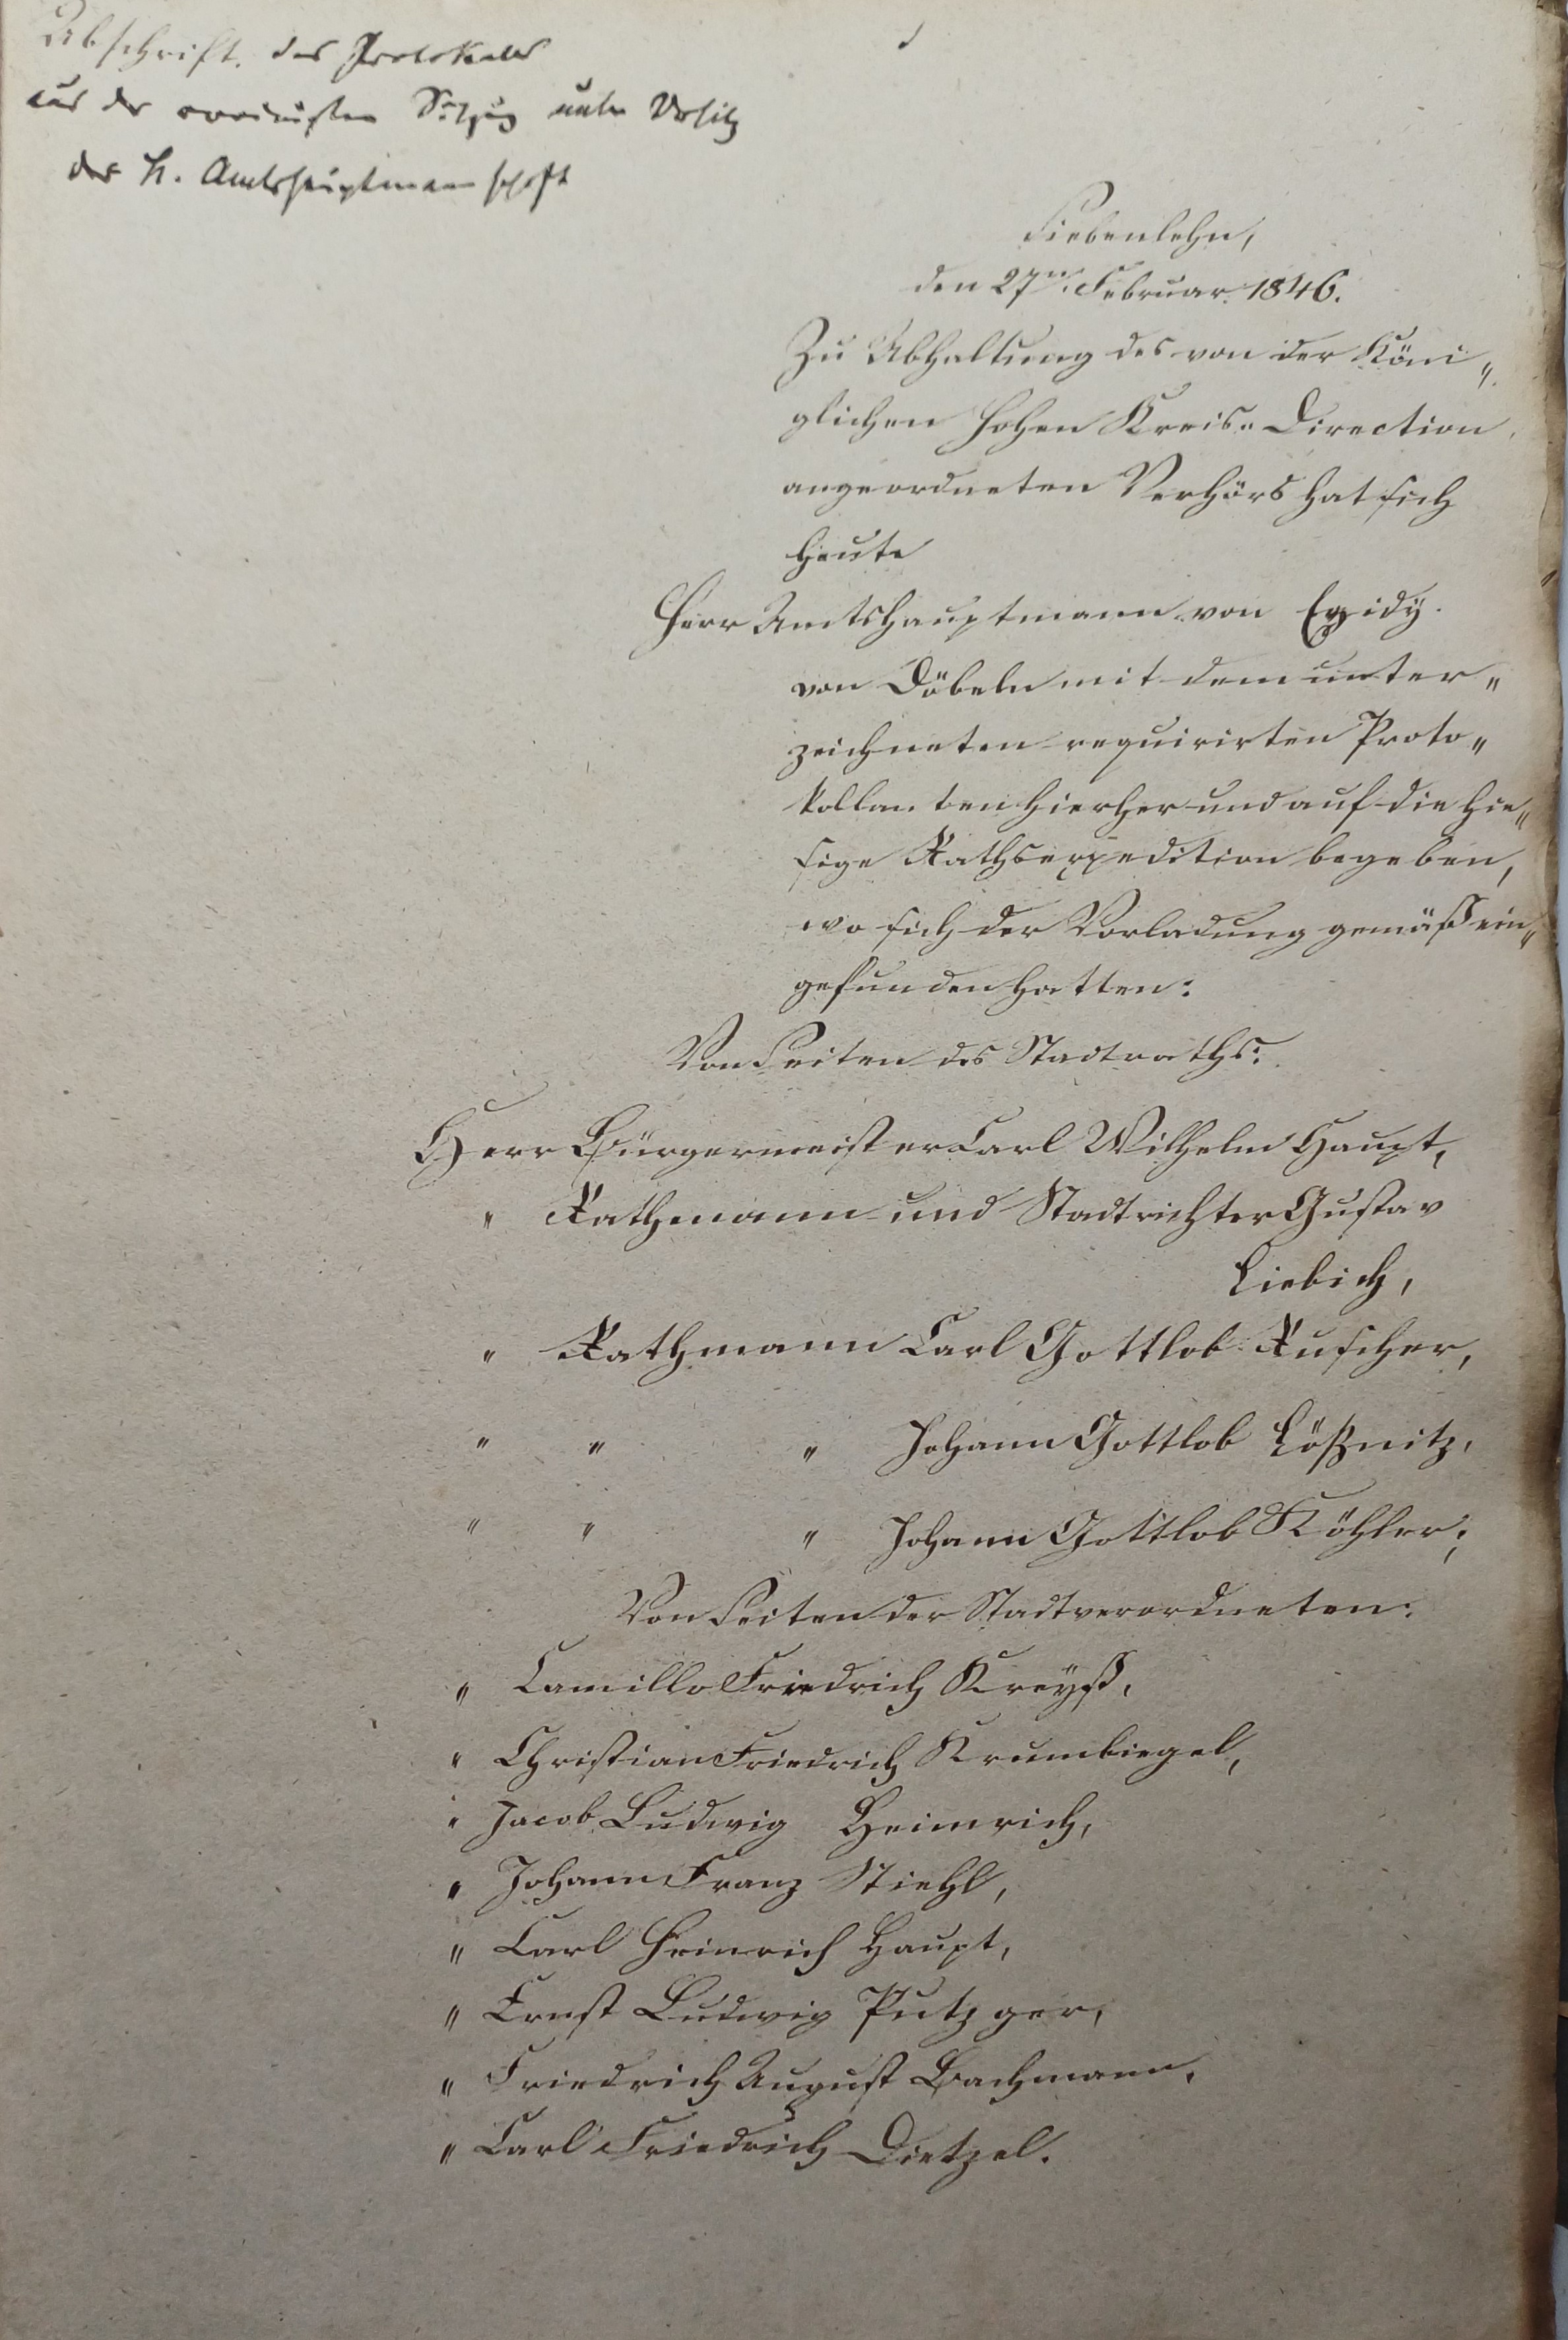 Abschrift des Protokolls
aus der vereinigten Sitzung unter Vorsitz
der K. Amtshauptmannschaft
Siebenlehn,
den 27ten Februar 1846.
Zu Abhaltung des von der Köni„
glichen hohen Kreis„Direction
angeordneten Verhörs hat sich
heute
Herr Amtshauptmann von Egidy
von Döbeln mit dem unter„
zeichneten requirirten Proto„
kollanten hierher und auf die hie„
sige Rathsexpedition begeben,
wo sich der Vorladung gemäß ein„
gefunden hatten:
Von Seiten des Stadtraths:
Herr Bürgermeister Carl Wilhelm Haupt,
„ Rathmann und Stadtrichter Gustav
Liebich,
„ Rathmann Carl Gottlob Ruscher,
„ „ „ Johann Gottlob Lößnitz,
„ „ „ Johann Gottlob Köhler;
Von Seiten der Stadtverordneten:
„ Camillo Friedrich Kreyß,
„ Christian Friedrich Krumbiegel,
„ Jacob Ludwig Heimrich,
„ Johann Franz Stiehl,
„ Carl Heinrich Haupt,
„ Ernst Ludwig Putzger,
„ Friedrich August Bachmann,
„ Carl Friedrich Dietzel.